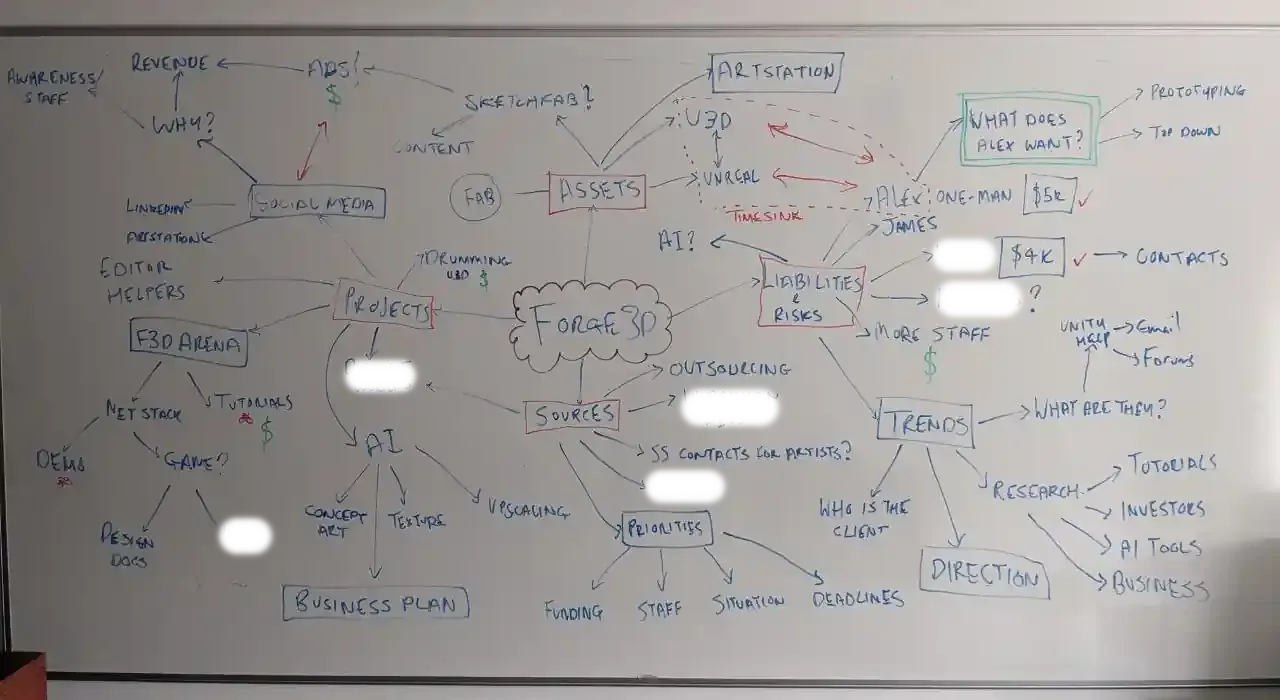 REVENUE
ADS!
$
AWARENESS/
STAFF
WHY?
SKETCHFAB?
CONTENT
ARTSTATION
U3D
UNREAL
TIMESINK
WHAT DOES
ALEX WANT?
PROTOTYPING
TOP DOWN
SOCIAL MEDIA
LINKEDIN
FAB
ASSETS
ALEX: ONE-MAN $5K
JAMES
AI?
$4K
CONTACTS
?
EDITOR
HELPERS
DRUMMING
U3D $
PROJECTS
FORGE3D
LIABILITIES
&
RISKS
MORE STAFF
$
UNITY
HELP
Email
Forums
F3D ARENA
OUTSOURCING
NET STACK
TUTORIALS
$
SOURCES
TRENDS
WHAT ARE THEY?
DEMO
GAME?
AI
SS CONTACTS FOR ARTISTS?
RESEARCH
TUTORIALS
INVESTORS
AI TOOLS
BUSINESS
DESIGN
DOCS
CONCEPT
ART
TEXTURE
UPSCALING
PRIORITIES
WHO IS THE
CLIENT
DIRECTION
BUSINESS PLAN
FUNDING
STAFF
SITUATION
DEADLINES